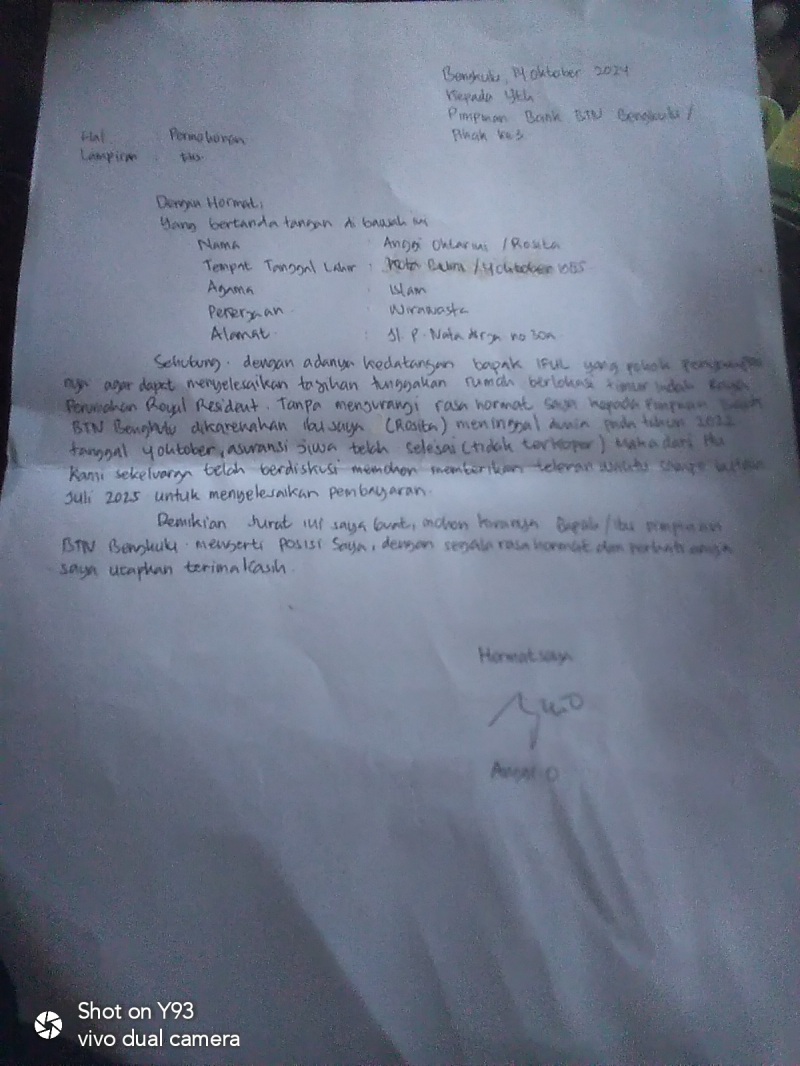 Bengkulu, 14 Oktober 2024
Kepada Yth
Pimpinan Bank BTN Bengkulu /
Pihak ke 3
Hal : Permohonan
Lampiran :
Dengan Hormat,
Yang bertanda tangan di bawah ini
Nama : Anggi Oktarini / Rosita
Tempat Tanggal Lahir : Kota / 4 Oktober
Agama : Islam
Pekerjaan : Wiraswasta
Alamat : Jl. P. Nata dirja no 30a
Sehubung dengan adanya kedatangan bapak IFUL yang pokok
nya agar dapat menyelesaikan tagihan tunggakan rumah berlokasi timur indah
Perumahan Royal Resident. Tanpa mengurangi rasa hormat saya kepada Pimpinan
BTN Bengkulu dikarenahan ibu saya (Rosita) meninggal dunia pada tahun 2022
tanggal 4 oktober, asuransi jiwa telah selesai (tidak tercover) Maka dari itu
Kami sekeluarga telah berdiskusi memohon memberikan waktu
Juli 2025 untuk menyelesaikan pembayaran.
Demikian surat ini saya buat, mohon kiranya Bapak / ibu pimpinan
BTN Bengkulu mengerti posisi saya, dengan segala rasa hormat dan
saya ucapkan terima kasih.
Hormat saya
Anggi O
Shot on Y93
vivo dual camera